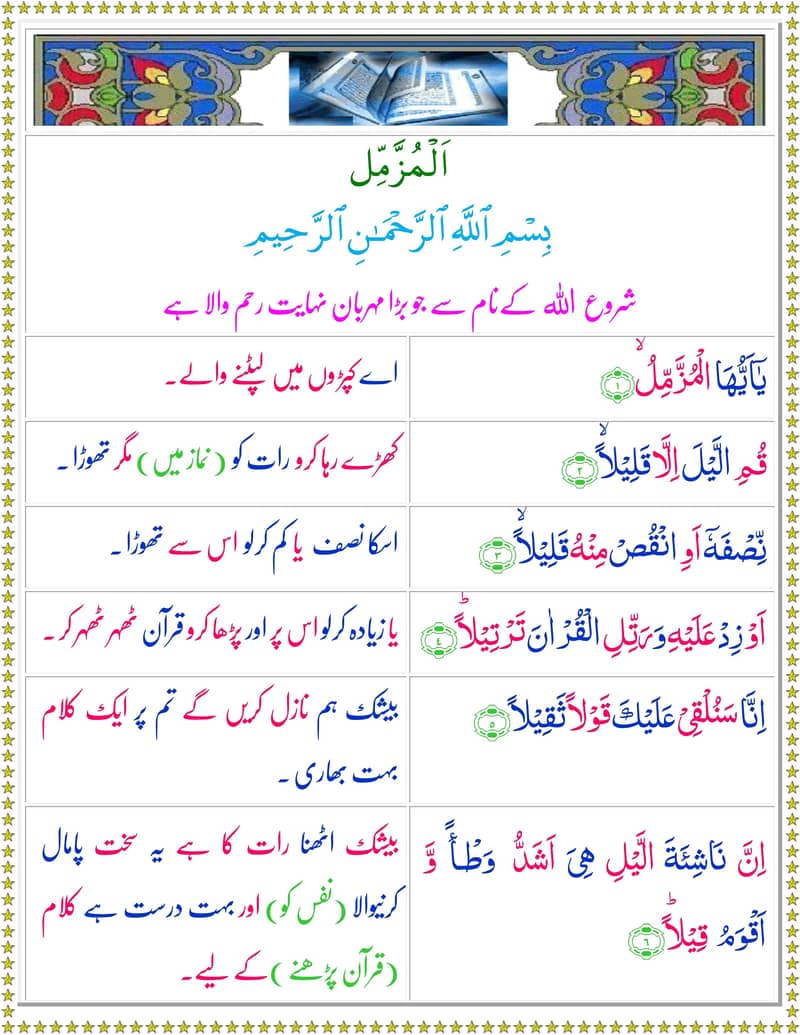 اَلْمُزَّمِّل
بِسْمِ ٱللَّهِ ٱلرَّحْمَـٰنِ ٱلرَّحِيمِ
شروع اللہ کے نام سے جو بڑا مہربان نہایت رحم والا ہے
يٰۤاَيُّهَا الْمُزَّمِّلُۙ ﴿۱﴾
اے کپڑوں میں لپٹنے والے۔
قُمِ الَّيْلَ اِلَّا قَلِيْلًاۙ ﴿۲﴾
کھڑے رہا کرو رات کو (نماز میں) مگر تھوڑا۔
نِّصْفَهٗۤ اَوِ انْقُصْ مِنْهُ قَلِيْلًاۙ ﴿۳﴾
اسکا نصف یا کم کرلو اس سے تھوڑا۔
اَوْ زِدْ عَلَيْهِ وَرَتِّلِ الْقُرْاٰنَ تَرْتِيْلًاؕ ﴿۴﴾
یا زیادہ کرلو اس پر اور پڑھا کرو قرآن ٹھہر ٹھہر کر۔
اِنَّا سَنُلْقِىْ عَلَيْكَ قَوْلًا ثَقِيْلًا ﴿۵﴾
بیشک ہم نازل کریں گے تم پر ایک کلام
بہت بھاری۔
اِنَّ نَاشِئَةَ الَّيْلِ هِىَ اَشَدُّ وَطْاً وَّ
اَقْوَمُ قِيْلًاؕ ﴿۶﴾
بیشک اٹھنا رات کا ہے یہ سخت پامال
کرنیوالا (نفس کو) اور بہت درست ہے کلام
(قرآن پڑھنے) کے لیے۔